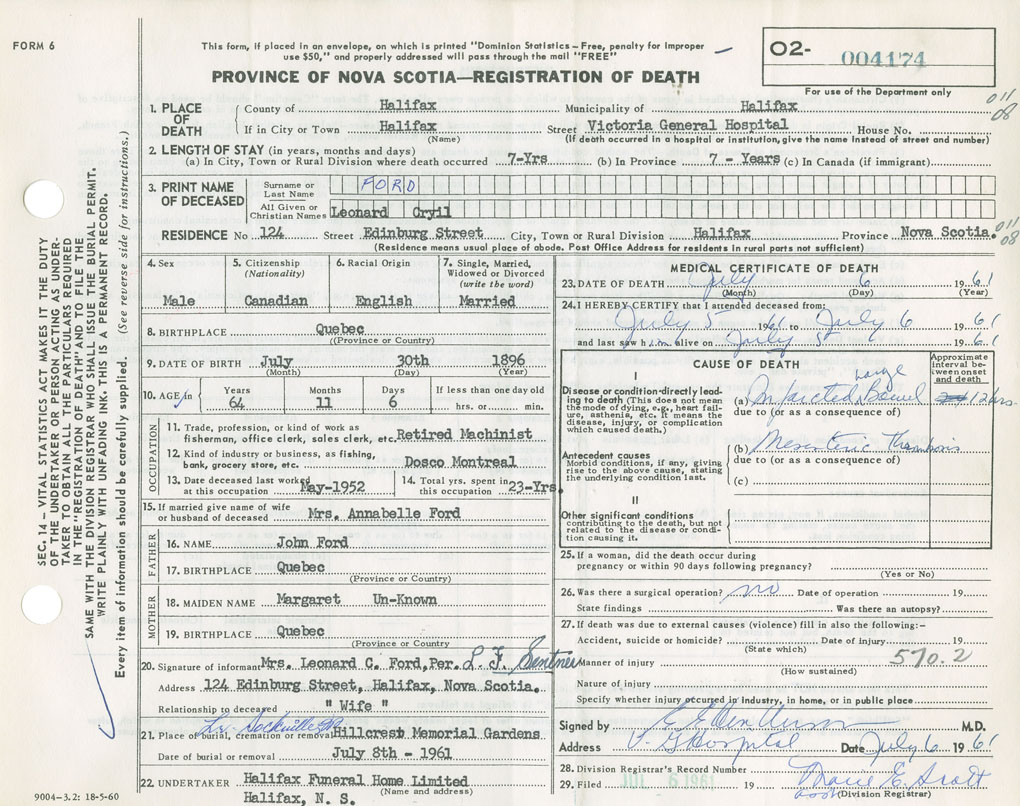 FORM 6
This form, if placed in an envelope, on which is printed "Dominion Statistics – Free, penalty for improper
use $50," and properly addressed will pass through the mail "FREE"
PROVINCE OF NOVA SCOTIA—REGISTRATION OF DEATH
O2- 004174
For use of the Department only
011
08
1. PLACE OF DEATH
County of Halifax Municipality of Halifax
If in City or Town Halifax Street Victoria General Hospital House No.
(Name) (If death occurred in a hospital or institution, give the name instead of street and number)
2. LENGTH OF STAY (in years, months and days)
(a) In City, Town or Rural Division where death occurred 7-Yrs (b) In Province 7 - Years (c) In Canada (if immigrant)
3. PRINT NAME OF DECEASED
Surname or Last Name FORD
All Given or Christian Names Leonard Cryil
RESIDENCE No 124 Street Edinburg Street City, Town or Rural Division Halifax Province Nova Scotia.
011
08
(Residence means usual place of abode. Post Office Address for residents in rural parts not sufficient)
4. Sex
Male
5. Citizenship
(Nationality)
Canadian
6. Racial Origin
English
7. Single, Married,
Widowed or Divorced
(write the word)
Married
8. BIRTHPLACE Quebec
(Province or Country)
9. DATE OF BIRTH July 30th 1896
(Month) (Day) (Year)
10. AGE in
Years 64
Months 11
Days 6
If less than one day old
hrs. or min.
OCCUPATION
11. Trade, profession, or kind of work as
fisherman, office clerk, sales clerk, etc. Retired Machinist
12. Kind of industry or business, as fishing,
bank, grocery store, etc. Dosco Montreal
13. Date deceased last worked
at this occupation May-1952
14. Total yrs. spent in
this occupation 23-Yrs.
15. If married give name of wife
or husband of deceased Mrs. Annabelle Ford
FATHER
16. NAME John Ford
17. BIRTHPLACE Quebec
(Province or Country)
MOTHER
18. MAIDEN NAME Margaret Un-Known
19. BIRTHPLACE Quebec
(Province or Country)
20. Signature of informant Mrs. Leonard C. Ford, Per. L. F.
Address 124 Edinburg Street, Halifax, Nova Scotia.
Relationship to deceased " Wife "
21. Place of burial, cremation or removal Hillcrest Memorial Gardens
Date of burial or removal July 8th - 1961
22. UNDERTAKER Halifax Funeral Home Limited
(Name and address)
Halifax, N. S.
MEDICAL CERTIFICATE OF DEATH
23. DATE OF DEATH July 6 1961
(Month) (Day) (Year)
24. I HEREBY CERTIFY that I attended deceased from:
July 5 1961 to July 6 1961
and last saw him alive on July 5 1961
CAUSE OF DEATH
Approximate
interval be-
tween onset
and death
I
Disease or condition directly lead-
ing to death (This does not mean
the mode of dying, e.g., heart fail-
ure, asthenia, etc. It means the
disease, injury, or complication
which caused death.)
(a) Infarcted Large Bowel 12 hrs
due to (or as a consequence of)
Antecedent causes
Morbid conditions, if any, giving
rise to the above cause, stating
the underlying condition last.
(b) Mesenteric Thrombosis
due to (or as a consequence of)
(c)
II
Other significant conditions
contributing to the death, but not
related to the disease or condi-
tion causing it.
25. If a woman, did the death occur during
pregnancy or within 90 days following pregnancy?
(Yes or No)
26. Was there a surgical operation? no Date of operation 19
State findings Was there an autopsy?
27. If death was due to external causes (violence) fill in also the following:-
Accident, suicide or homicide? Date of injury 19
(State which)
570.2
Manner of injury
(How sustained)
Nature of injury
Specify whether injury occurred in industry, in home, or in public place
Signed by M.D.
Address V. G Hospital Date July 6 1961
28. Division Registrar's Record Number
29. Filed JUL 6 1961 19 Marie E. Scott
(Division Registrar)
SEC. 14 – VITAL STATISTICS ACT MAKES IT THE DUTY
OF THE UNDERTAKER OR PERSON ACTING AS UNDER-
TAKER TO OBTAIN ALL THE PARTICULARS REQUIRED
IN THE "REGISTRATION OF DEATH" AND TO FILE THE
SAME WITH THE DIVISION REGISTRAR WHO SHALL ISSUE THE BURIAL PERMIT.
WRITE PLAINLY WITH UNFADING INK. THIS IS A PERMANENT RECORD.
Every item of information should be carefully supplied. (See reverse side for instructions.)
9004-3.2: 18-5-60